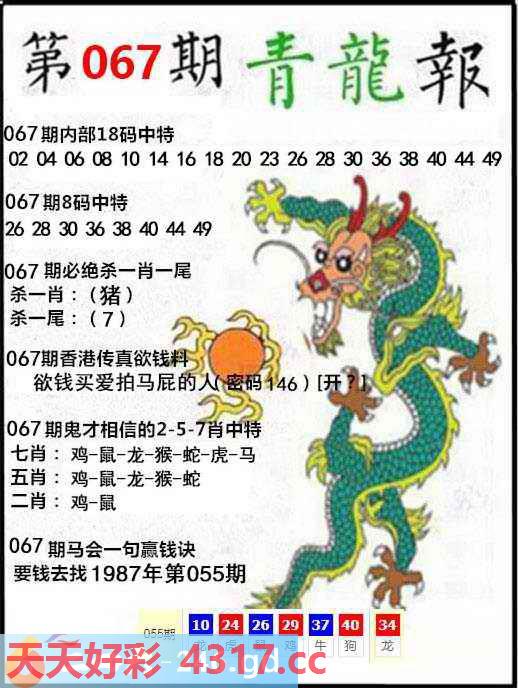 第067期 青龍報
067期内部18码中特
02 04 06 08 10 14 16 18 20 23 26 28 30 36 38 40 44 49
067期8码中特
26 28 30 36 38 40 44 49
067期必绝杀一肖一尾
杀一肖：（猪）
杀一尾：（7）
067期香港传真欲钱料
欲钱买爱拍马屁的人（密码146）[开？]
067期鬼才相信的2-5-7肖中特
七肖：鸡-鼠-龙-猴-蛇-虎-马
五肖：鸡-鼠-龙-猴-蛇
二肖：鸡-鼠
067期马会一句赢钱诀
要钱去找1987年第055期
055期 10 24 26 29 37 40 34
龙 虎 鼠 鸡 牛 狗 龙
天天好彩 4317.cc